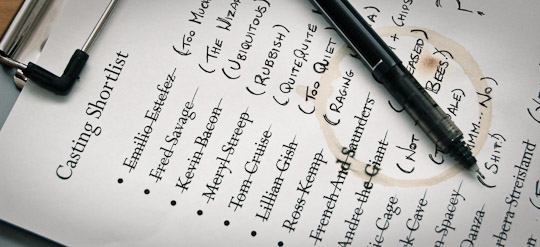 Casting Shortlist
• Emilio Estefez (Too Much
• Fred Savage (The Wizar
• Kevin Bacon (Ubiquitous)
• Meryl Streep (Rubbish)
• Tom Cruise (QuiteQuite
• Lillian Gish (Too Quiet)
• Ross Kemp (Raging
French And Saunders + Chips
Andre the Giant
Cage (Not Bees)
Cave
Spacey No)
(Shit)
Streisland